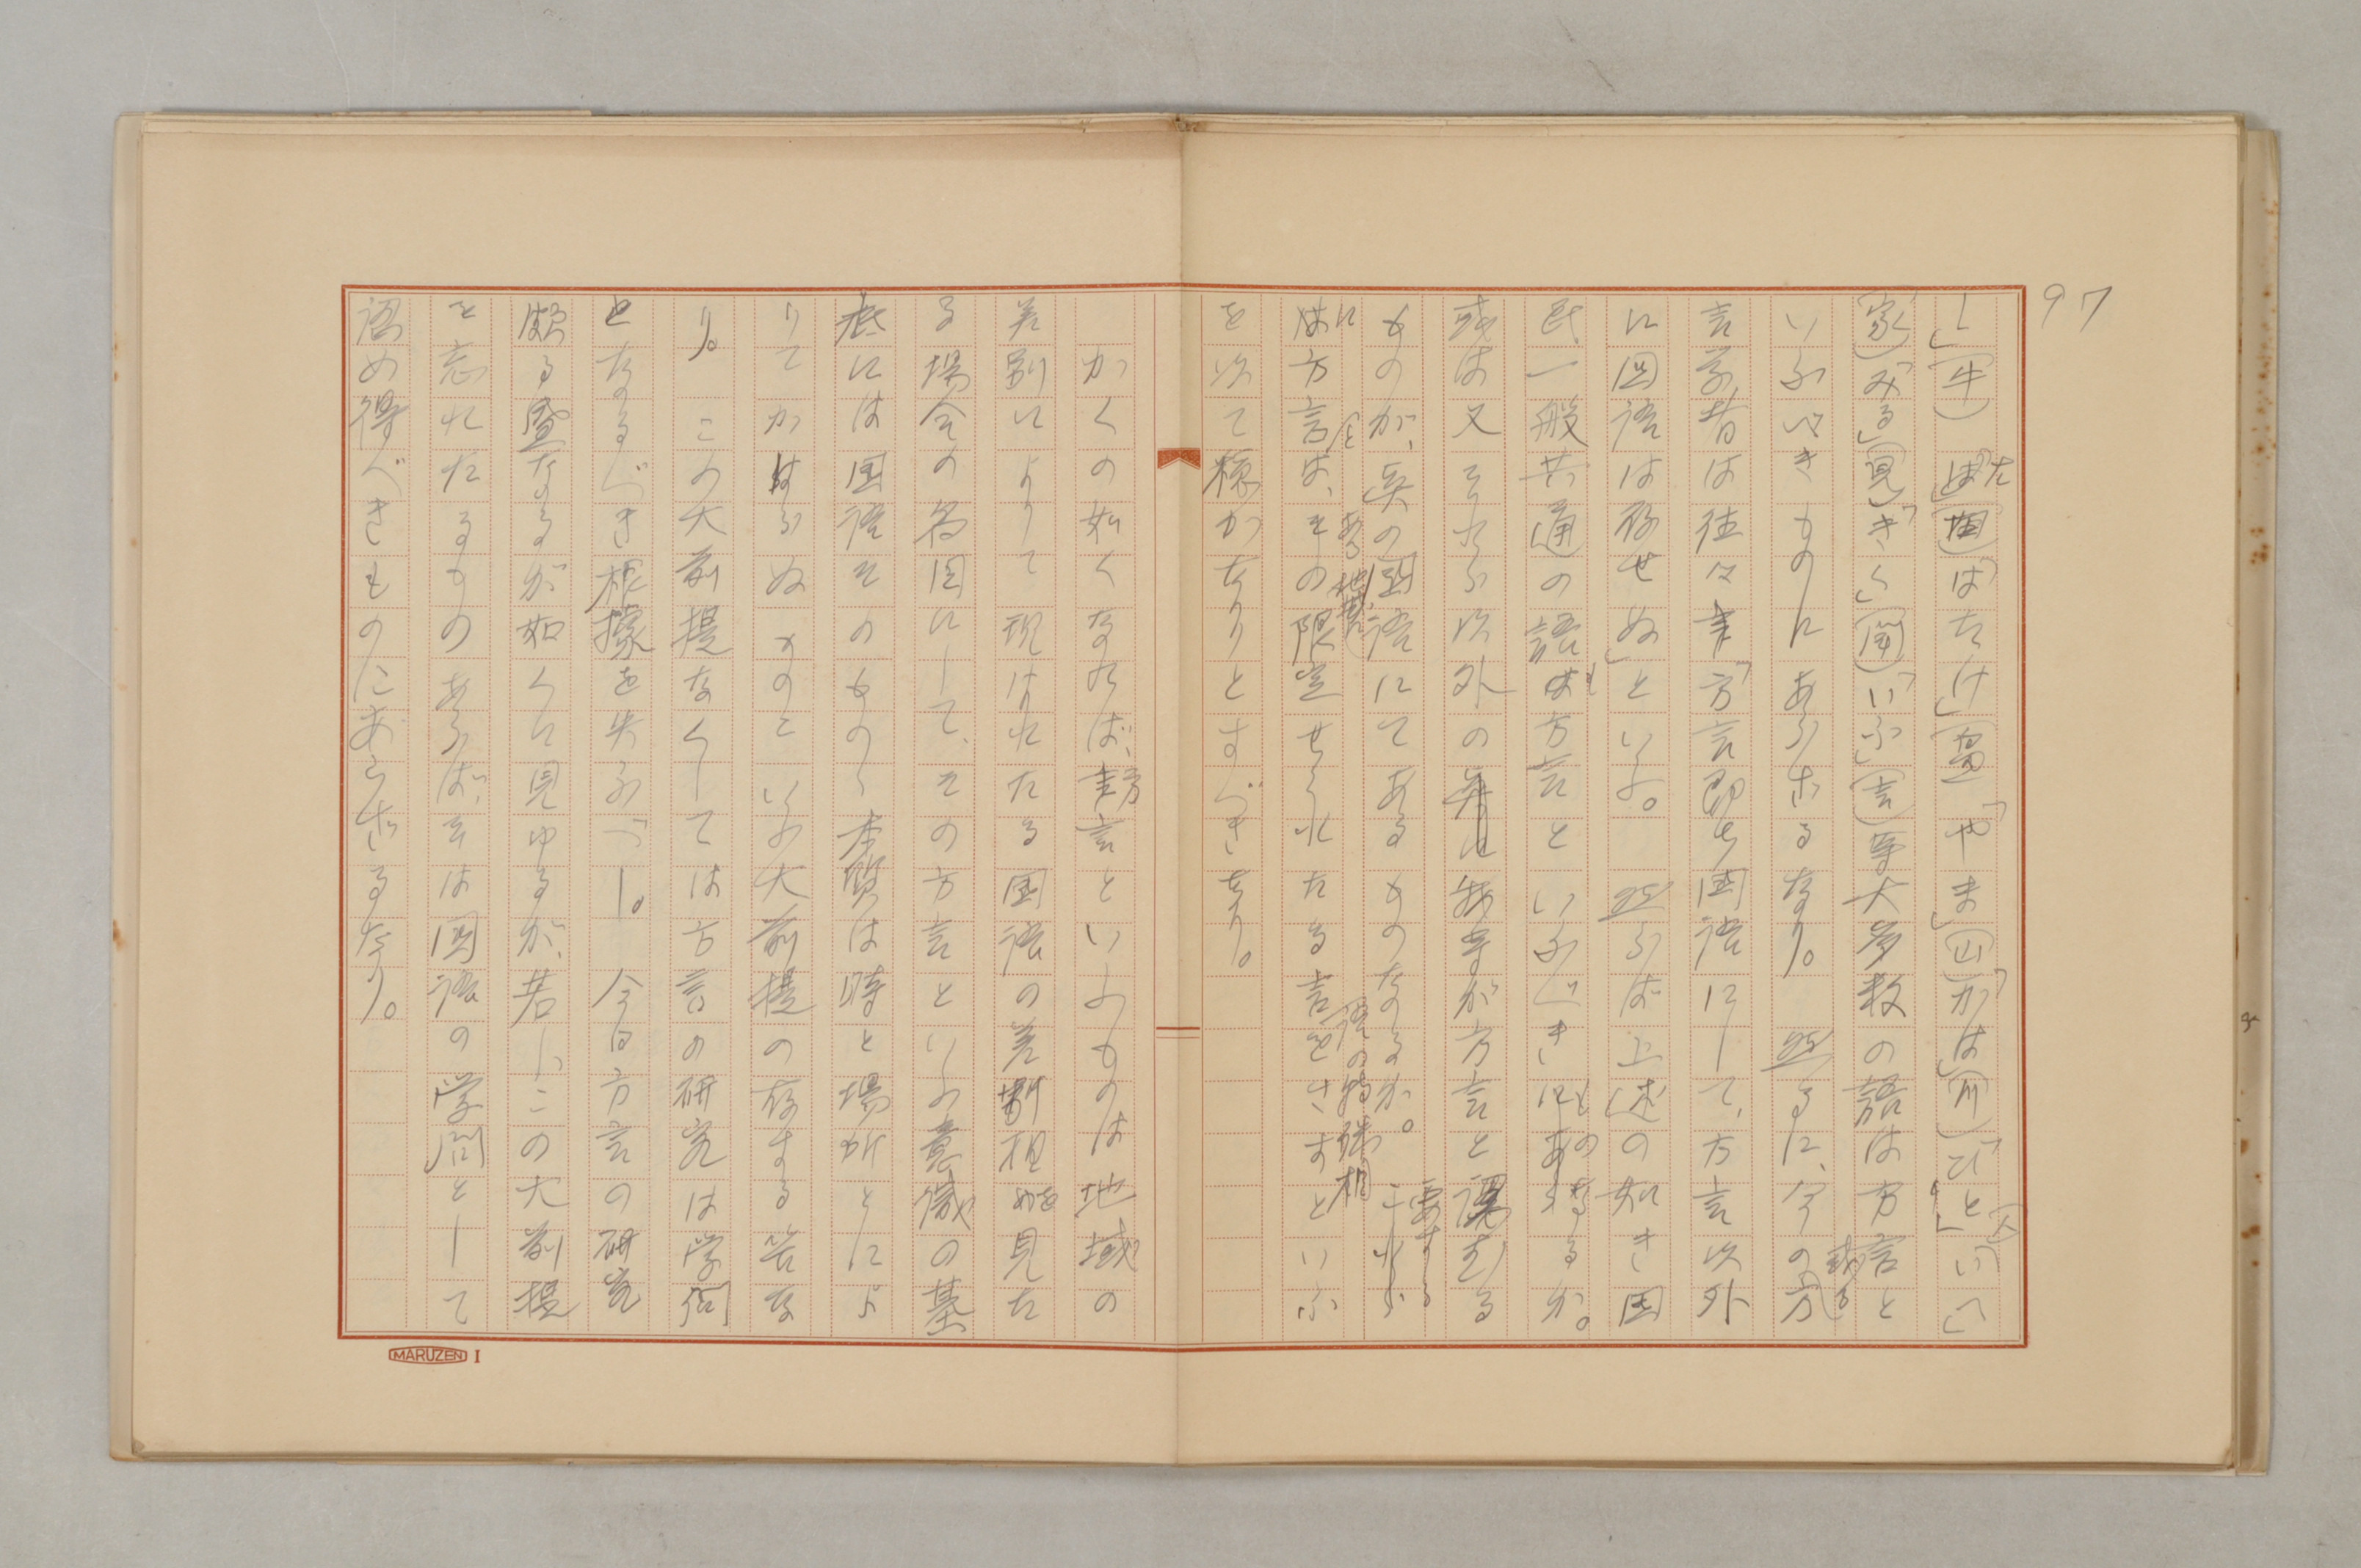 97
し」(牛)「はた」(畑)「はたけ」(畠)「やま」(山)「かは」(川)「ひと」(人)「いへ」
(家)「みる」(見)「きく」(聞)「いふ」(言)等大多数の語は方言と
いふべきものにあらざるなり。然るに、今の方
言学者は往々「方言即ち国語にして、方言以外
に国語は存せぬ」といふ。然らば上述の如き国
民一般共通の語も方言といふべきものなるか。
或は又それら以外の
ものが、
は方言は、その限定せられたる言をさすといふ
を以て穏かなりとすべきなり。
かくの如くなれば、方言といふものは地域の
差別によりて現はれたる国語の差別相を見た
る場合の名目にして、その方言といふ意識の基
底には国語そのものゝ本質は時と場所とによ
りてかはらぬものといふ大前提の存する筈な
り。この大前提なくしては方言の研究は学問
となるべき根拠を失ふべし。今日方言の研究
頗る盛なるが如くに見ゆるが、若しこの大前提
を忘れたるものあらば、そは国語の学問として
認め得べきものにあらざるなり。
MARUZEN I